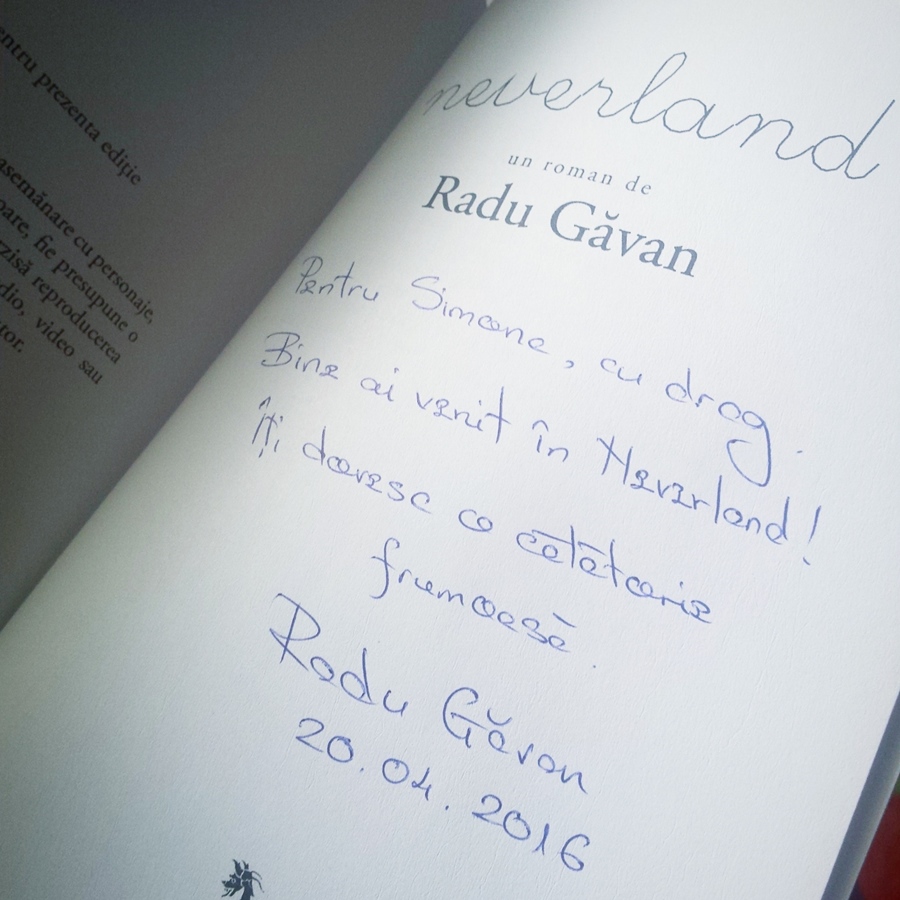 entru prezenta ediție
asemănare cu personaje,
oare, fie presupune o
zisă reproducerea
dio, video sau
tor.
neverland
un roman de
Radu Găvan
Pentru Simona, cu drag.
Bine ai venit în Neverland!
Îți doresc o călătorie
frumoasă.
Radu Găvan
20.04.2016